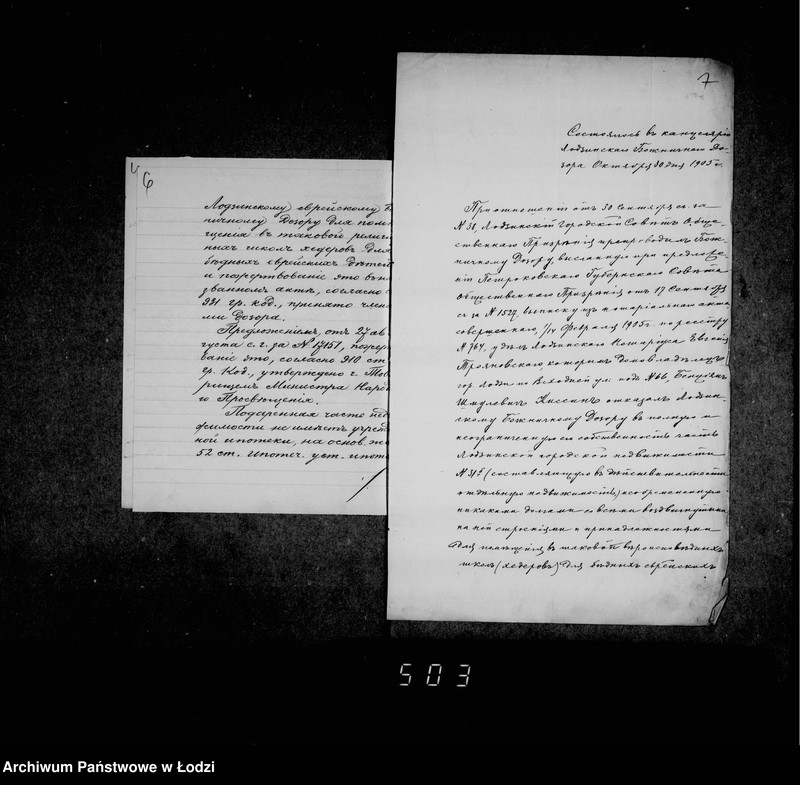 6
Лодзинскому еврейскому Б
ничному Дозору для поме
щенія въ таковой религі
ныхъ школъ хедеровъ для
бѣдныхъ еврейскихъ дѣтей
и пожертвованіе это въ
званномъ актѣ, согласно
931 гр. код., принято чле
ми Дозора.
Предложеніемъ, отъ 27 ав
густа с. г. за № 17157, пожерт
ваніе это, согласно 910 ст
гр. Код., утверждено г. Тов
рищемъ Министра Народ
го Просвѣщенія.
Подаренная часть нед
жимости не имѣетъ учреж
ной ипотеки, на основ.
52 ст. Ипотеч. уст. ипоте
7
Состоялось въ канцеляріи
Лодзинскаго Божничнаго До-
зора Октября 30 дня 1905 г.
При отношеніи отъ 30 Сентября с.г. за
№ 38, Лодзинскій Городской Совѣтъ Обще-
ственнаго Призрѣнія препроводилъ Бож-
ничному Дозору высланную при предложе-
ніи Петроковскаго Губернскаго Совѣта
Общественнаго Призрѣнія отъ 17 Сентября
с.г. за № 1527, выписку изъ нотаріальнаго акта
совершеннаго, Февраля 1905 г. по реестру
№ 764, у дѣлъ Лодзинскаго Нотаріуса Евгенія
Трояновскаго, которымъ домовладѣлецъ
гор. Лодзи по Входной ул. подъ № 66,
Шмулевичъ отказалъ Лодзин-
скому Божничному Дозору въ полную и
неограниченную собственность часть
Лодзинской городской недвижимости
№ (составляющую въ дѣйствительности
отдѣльную недвижимость) необремененную
никакими долгами со всѣми воздвигнутыми
на ней строеніями и принадлежностями
для помѣщенія въ таковой вѣроисповѣдныхъ
школъ (хедеровъ) для бѣдныхъ еврейскихъ
503
Archiwum Państwowe w Łodzi